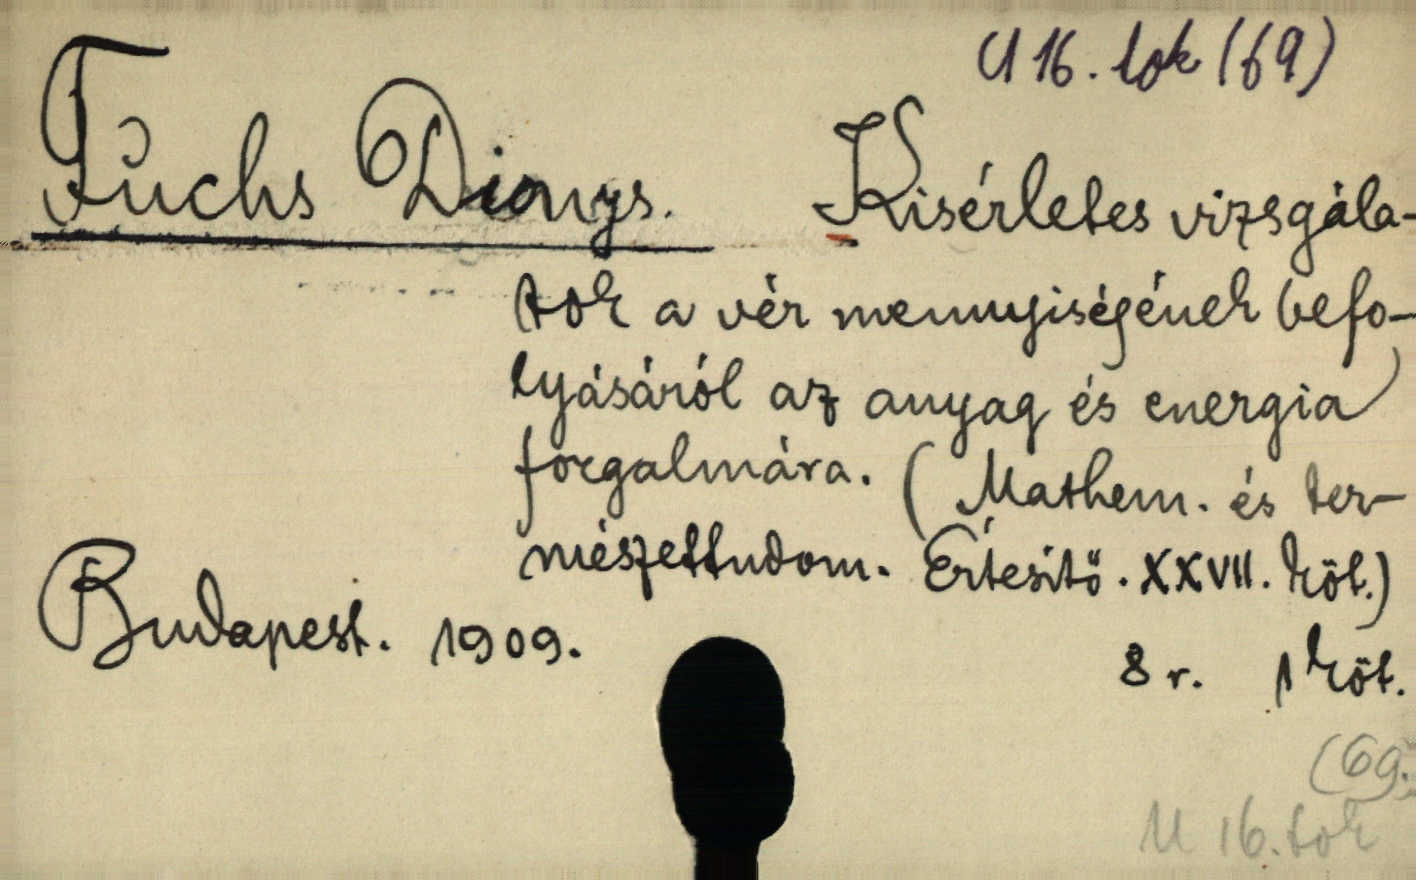 U 16. tok (69)
Fuchs Dionys. Kisérletes vizsgála-
tok a vér mennyiségének befo-
lyásáról az anyag és energia
forgalmára. (Mathem. és ter-
mészettudom. Értesítő. XXVII. köt.)
Budapest. 1909.
8 r. 1 köt.
(69.
U 16. tok